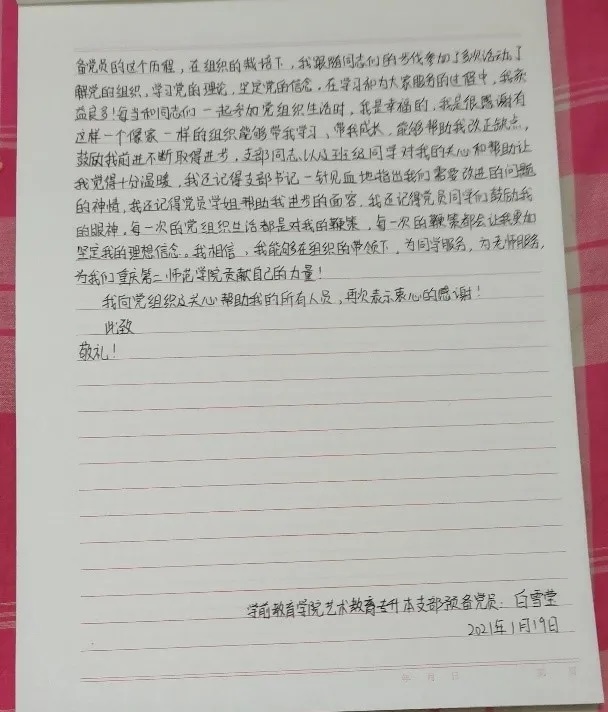 备党员的这个历程，在组织的栽培下，我跟随同志们的步伐参加了多次活动，了
解党的组织，学习党的理论，坚定党的信念，在学习和为大家服务的过程中，我亦
益良多！每当和同志们一起参加党组织生活时，我是幸福的，我是很感谢有
这样一个像家一样的组织能够带我学习、带我成长，能够帮助我改正缺点，
鼓励我前进不断取得进步，支部同志以及班级同学对我的关心和帮助让
我觉得十分温暖，我还记得支部书记一针见血地指出我们需要改进的问题
的神情，我还记得党员学姐帮助我进步的面容，我还记得党员同学们鼓励我
的眼神，每一次的党组织生活都是对我的鞭策，每一次的鞭策都会让我更加
坚定我的理想信念。我相信，我能够在组织的带领下，为同学服务，为老师服务，
为我们重庆第二师范学院贡献自己的力量！
我向党组织及关心帮助我的所有人员，再次表示衷心的感谢！
此致
敬礼！
学前教育学院艺术教育专升本支部预备党员：白雪莹
2021年1月19日
年 月 日 第 页